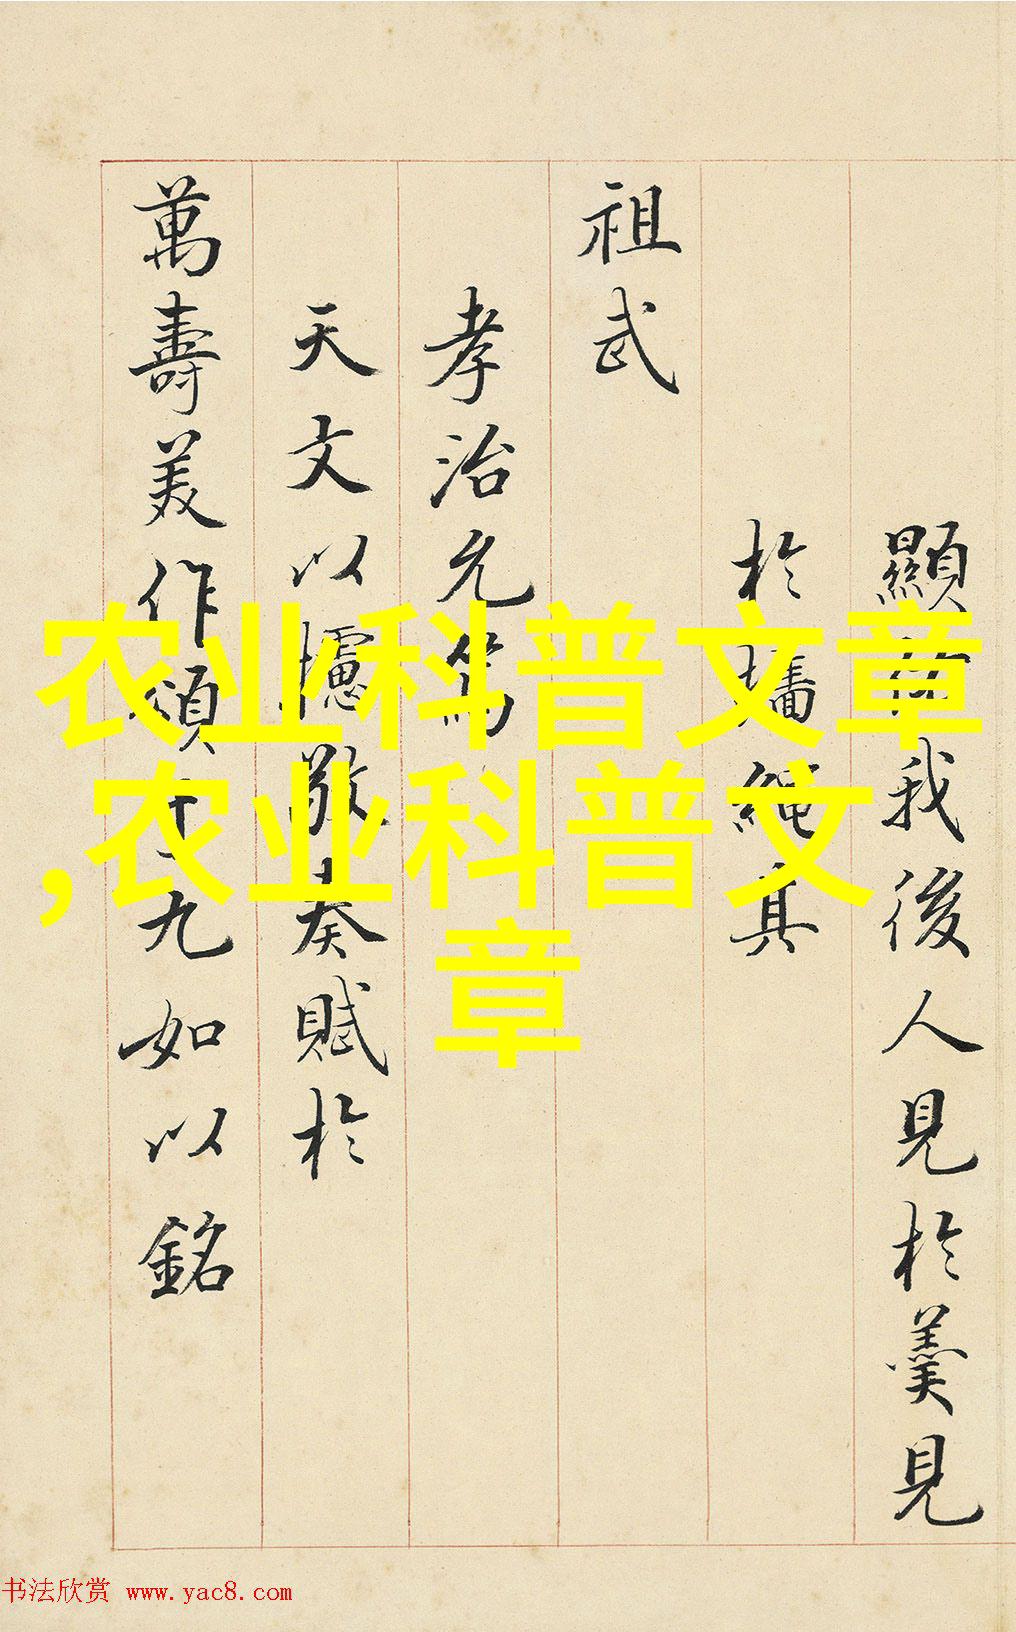 顯我後人見於羹見
於墻繩其
祖武
孝治允
天文以攄敬奏賦於
萬壽美作頌十九如以銘
农业科普文章
,农业科普文
章
书法欣赏 www.yac8.com